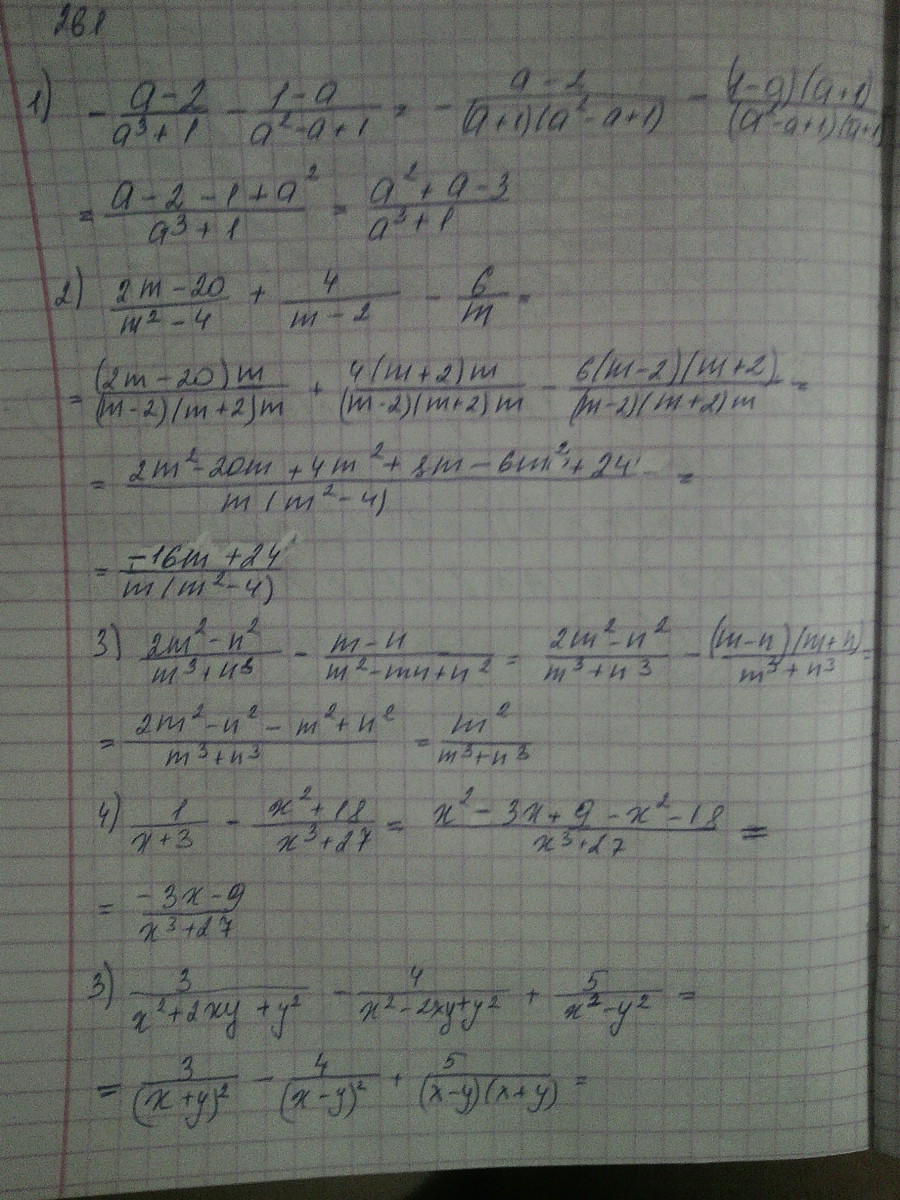 261
1) - (a-2)/(a³+1) - (1-a)/(a²-a+1) = - (a-2)/((a+1)(a²-a+1)) - ((1-a)(a+1))/((a²-a+1)(a+1)
= (a-2-1+a²)/(a³+1) = (a²+a-3)/(a³+1)
2) (2m-20)/(m²-4) + 4/(m-2) - 6/m =
= ((2m-20)m)/((m-2)(m+2)m) + (4(m+2)m)/((m-2)(m+2)m) - (6(m-2)(m+2))/((m-2)(m+2)m) =
= (2m²-20m+4m²+8m-6m²+24)/(m(m²-4)) =
= (-16m+24)/(m(m²-4))
3) (2m²-n²)/(m³+n³) - (m-n)/(m²-mn+n²) = (2m²-n²)/(m³+n³) - ((m-n)(m+n))/(m³+n³) =
= (2m²-n²-m²+n²)/(m³+n³) = m²/(m³+n³)
4) 1/(x+3) - (x²+18)/(x³+27) = (x²-3x+9-x²-18)/(x³+27) =
= (-3x-9)/(x³+27)
3) 3/(x²+2xy+y²) - 4/(x²-2xy+y²) + 5/(x²-y²) =
= 3/(x+y)² - 4/(x-y)² + 5/((x-y)(x+y)) =